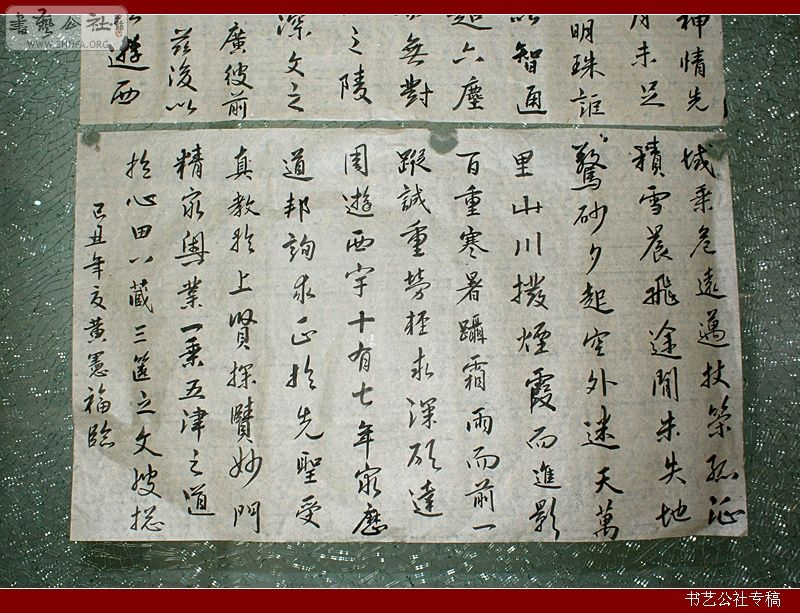 書藝公社
WWW.SHUFA.ORG
神情先
月未足
明珠詎
以智通
超六塵
無對
之陵
深文之
廣彼前
茲後以
遊西
城乗危遠邁杖策孤征
積雪晨飛途閒失地
驚砂夕起空外迷天萬
里山川撥煙霞而進影
百重寒暑躡霜雨而前一
蹤誠重勞輕求深願達
周遊西宇十有七年窮歷
道邦詢求正於先聖受
真教於上賢探賾妙門
精窮奧業一乘五律之道
於心田八藏三篋之文
己丑年夏黃憲福臨
书艺公社专稿